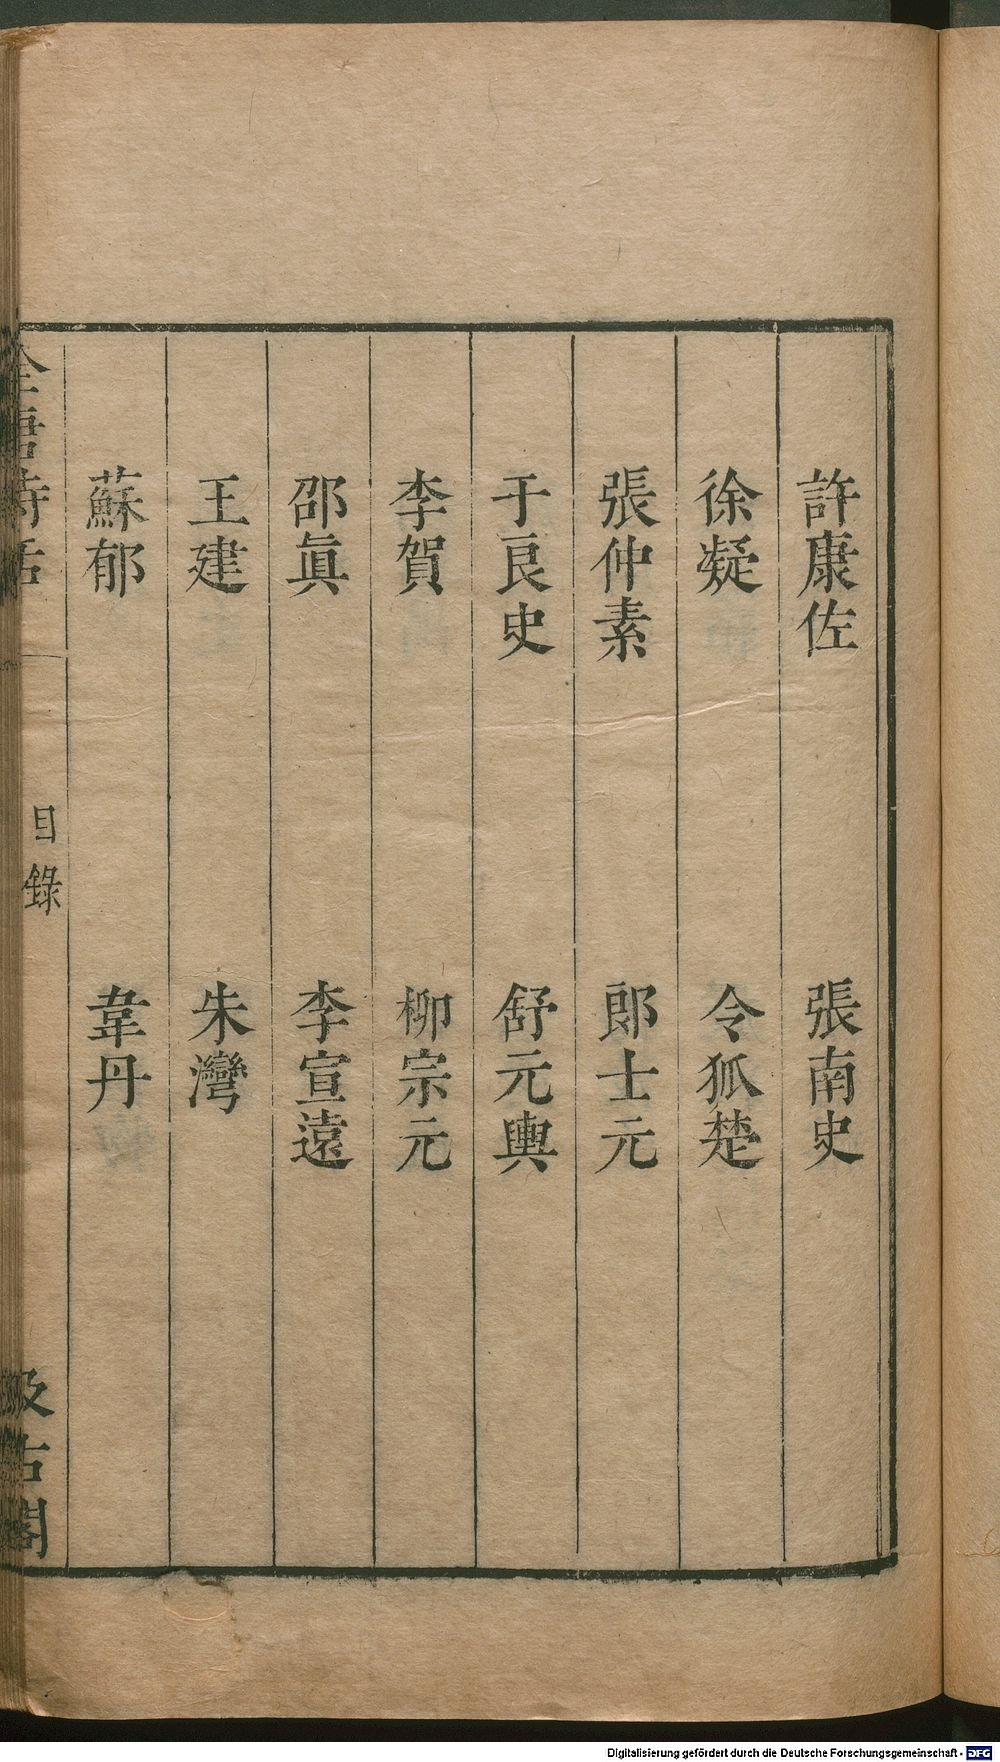 許康佐　張南史
徐凝　令狐楚
張仲素　郎士元
于良史　舒元輿
李賀　柳宗元
邵眞　李宣遠
王建　朱灣
蘇郁　韋丹
全唐詩話　目錄　汲古閣
Digitalisierung gefördert durch die Deutsche Forschungsgemeinschaft - DFG